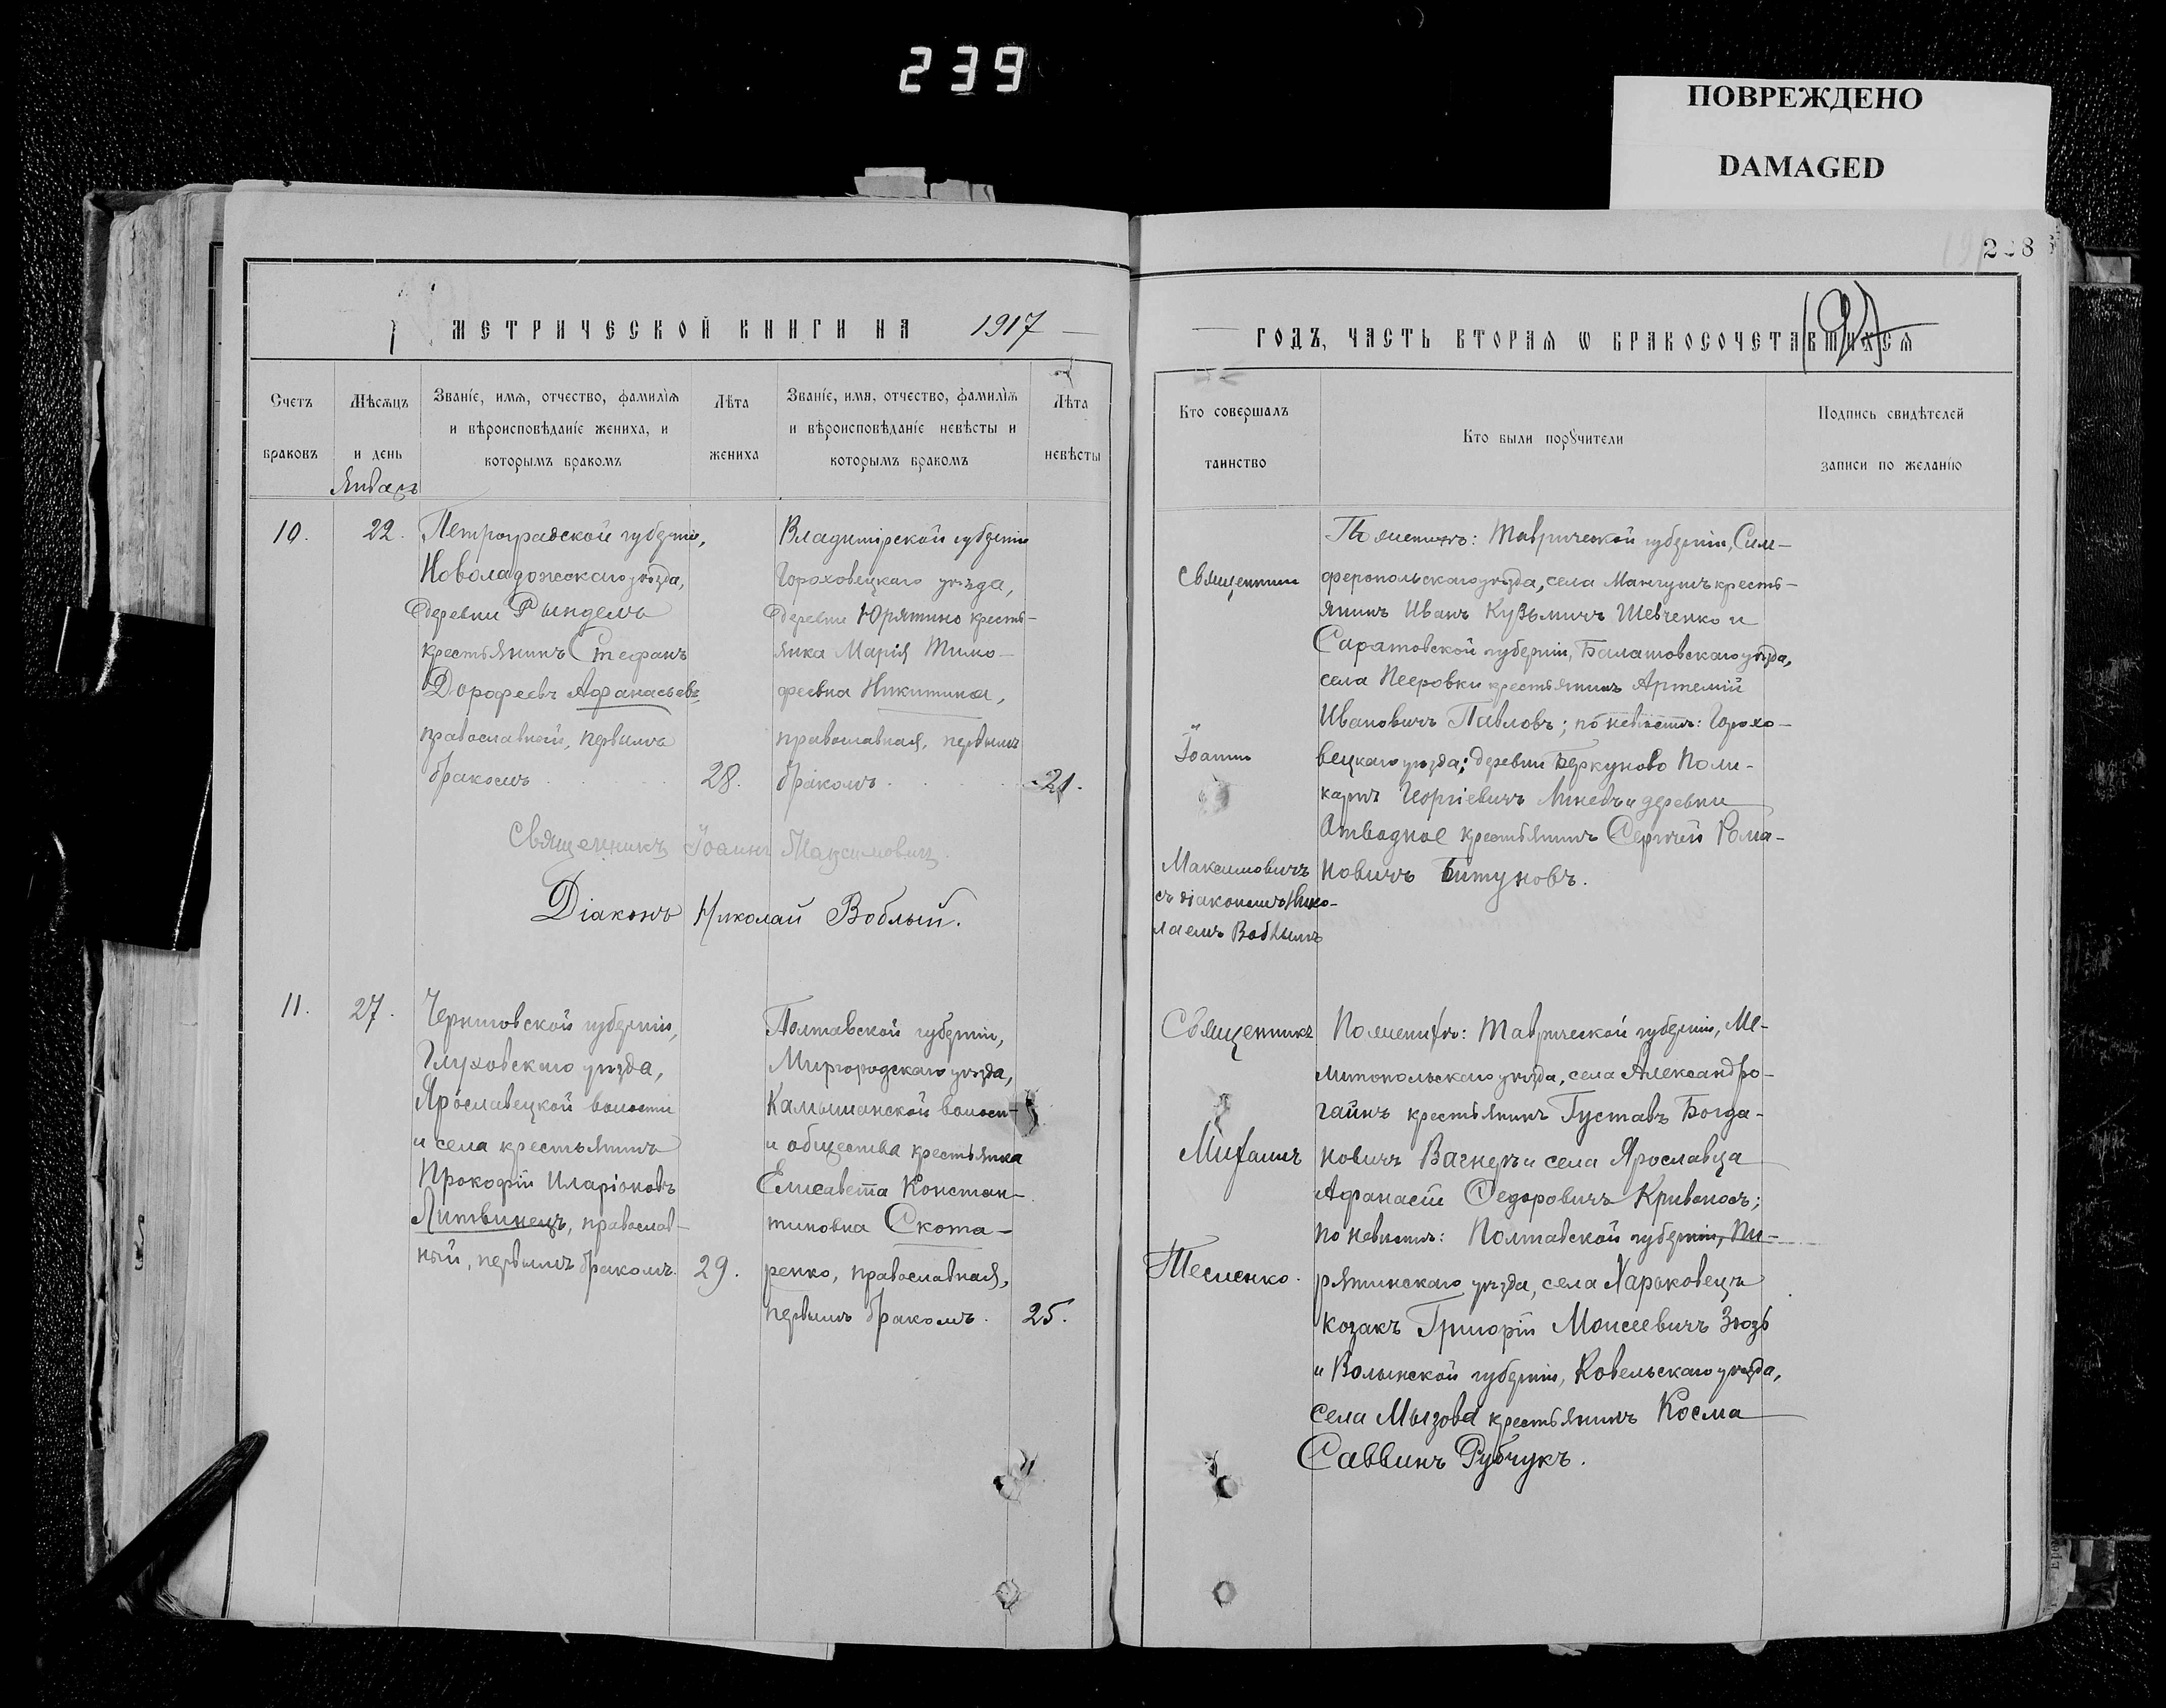 239
ПОВРЕЖДЕНО
DAMAGED
МЕТРИЧЕСКОЙ КНИГИ НА 1917
Счетъ браковъ
Мѣсяцъ и день
Январь
Званіе, имя, отчество, фамилія
и вѣроисповѣданіе жениха, и
которымъ бракомъ
Лѣта жениха
Званіе, имя, отчество, фамилія
и вѣроисповѣданіе невѣсты и
которымъ бракомъ
Лѣта невѣсты
10.
22.
Петроградской губерніи,
Новоладожскаго уѣзда,
деревни Рындель
крестьянинъ Стефанъ
Дорофеевъ Афанасьевъ,
православный, первымъ
бракомъ
28.
Владимірской губерніи
Гороховецкаго уѣзда,
деревни Юрятино кресть-
янка Марія Тимо-
феевна Никитина,
православная, первымъ
бракомъ.
21.
Священникъ Іоаннъ Максимовичъ.
Діаконъ Николай Воблый.
11.
27.
Черниговской губерніи,
Глуховскаго уѣзда,
Ярославецкой волости
и села крестьянинъ
Прокофій Иларіоновъ
Литвинецъ, православ-
ный, первымъ бракомъ.
29.
Полтавской губерніи,
Миргородскаго уѣзда,
Камышанской волости
и общества крестьянка
Елисавета Констан-
тиновна Скота-
ренко, православная,
первымъ бракомъ.
25.
228
ГОДЪ, ЧАСТЬ ВТОРАЯ Ѡ БРАКОСОЧЕТАВШИХСЯ
Кто совершалъ
таинство
Кто были порꙋчители
Подпись свидѣтелей
записи по желанію
Священникъ
Іоаннъ
Максимовичъ
съ діакономъ Нико-
лаемъ Воблымъ
По женихѣ: Таврической губерніи, Сим-
феропольскаго уѣзда, села Мангушъ кресть-
янинъ Иванъ Кузьмичъ Шевченко и
Саратовской губерніи, Балашовскаго уѣзда,
села крестьянинъ Артемій
Ивановичъ Павловъ; по невѣстѣ: Горохо-
вецкаго уѣзда; деревни Беркуново Поли-
карпъ Георгіевичъ и деревни
крестьянинъ Сергѣй Рома-
новичъ Битуновъ.
Священникъ
Митаилъ
Тесленко.
По женихѣ: Таврической губерніи, Ме-
литопольскаго уѣзда, села Александро-
гаинъ крестьянинъ Густавъ Богда-
новичъ Вагнеръ и села Ярославца
Афанасій Федоровичъ Кривоносъ;
по невѣстѣ: Полтавской губерніи, Пи-
рятинскаго уѣзда, села Харьковецъ
козакъ Григорій Моисеевичъ Зюзь
и Волынской губерніи, Ковельскаго уѣзда,
села Мызова крестьянинъ Косма
Саввинъ Рубчукъ.